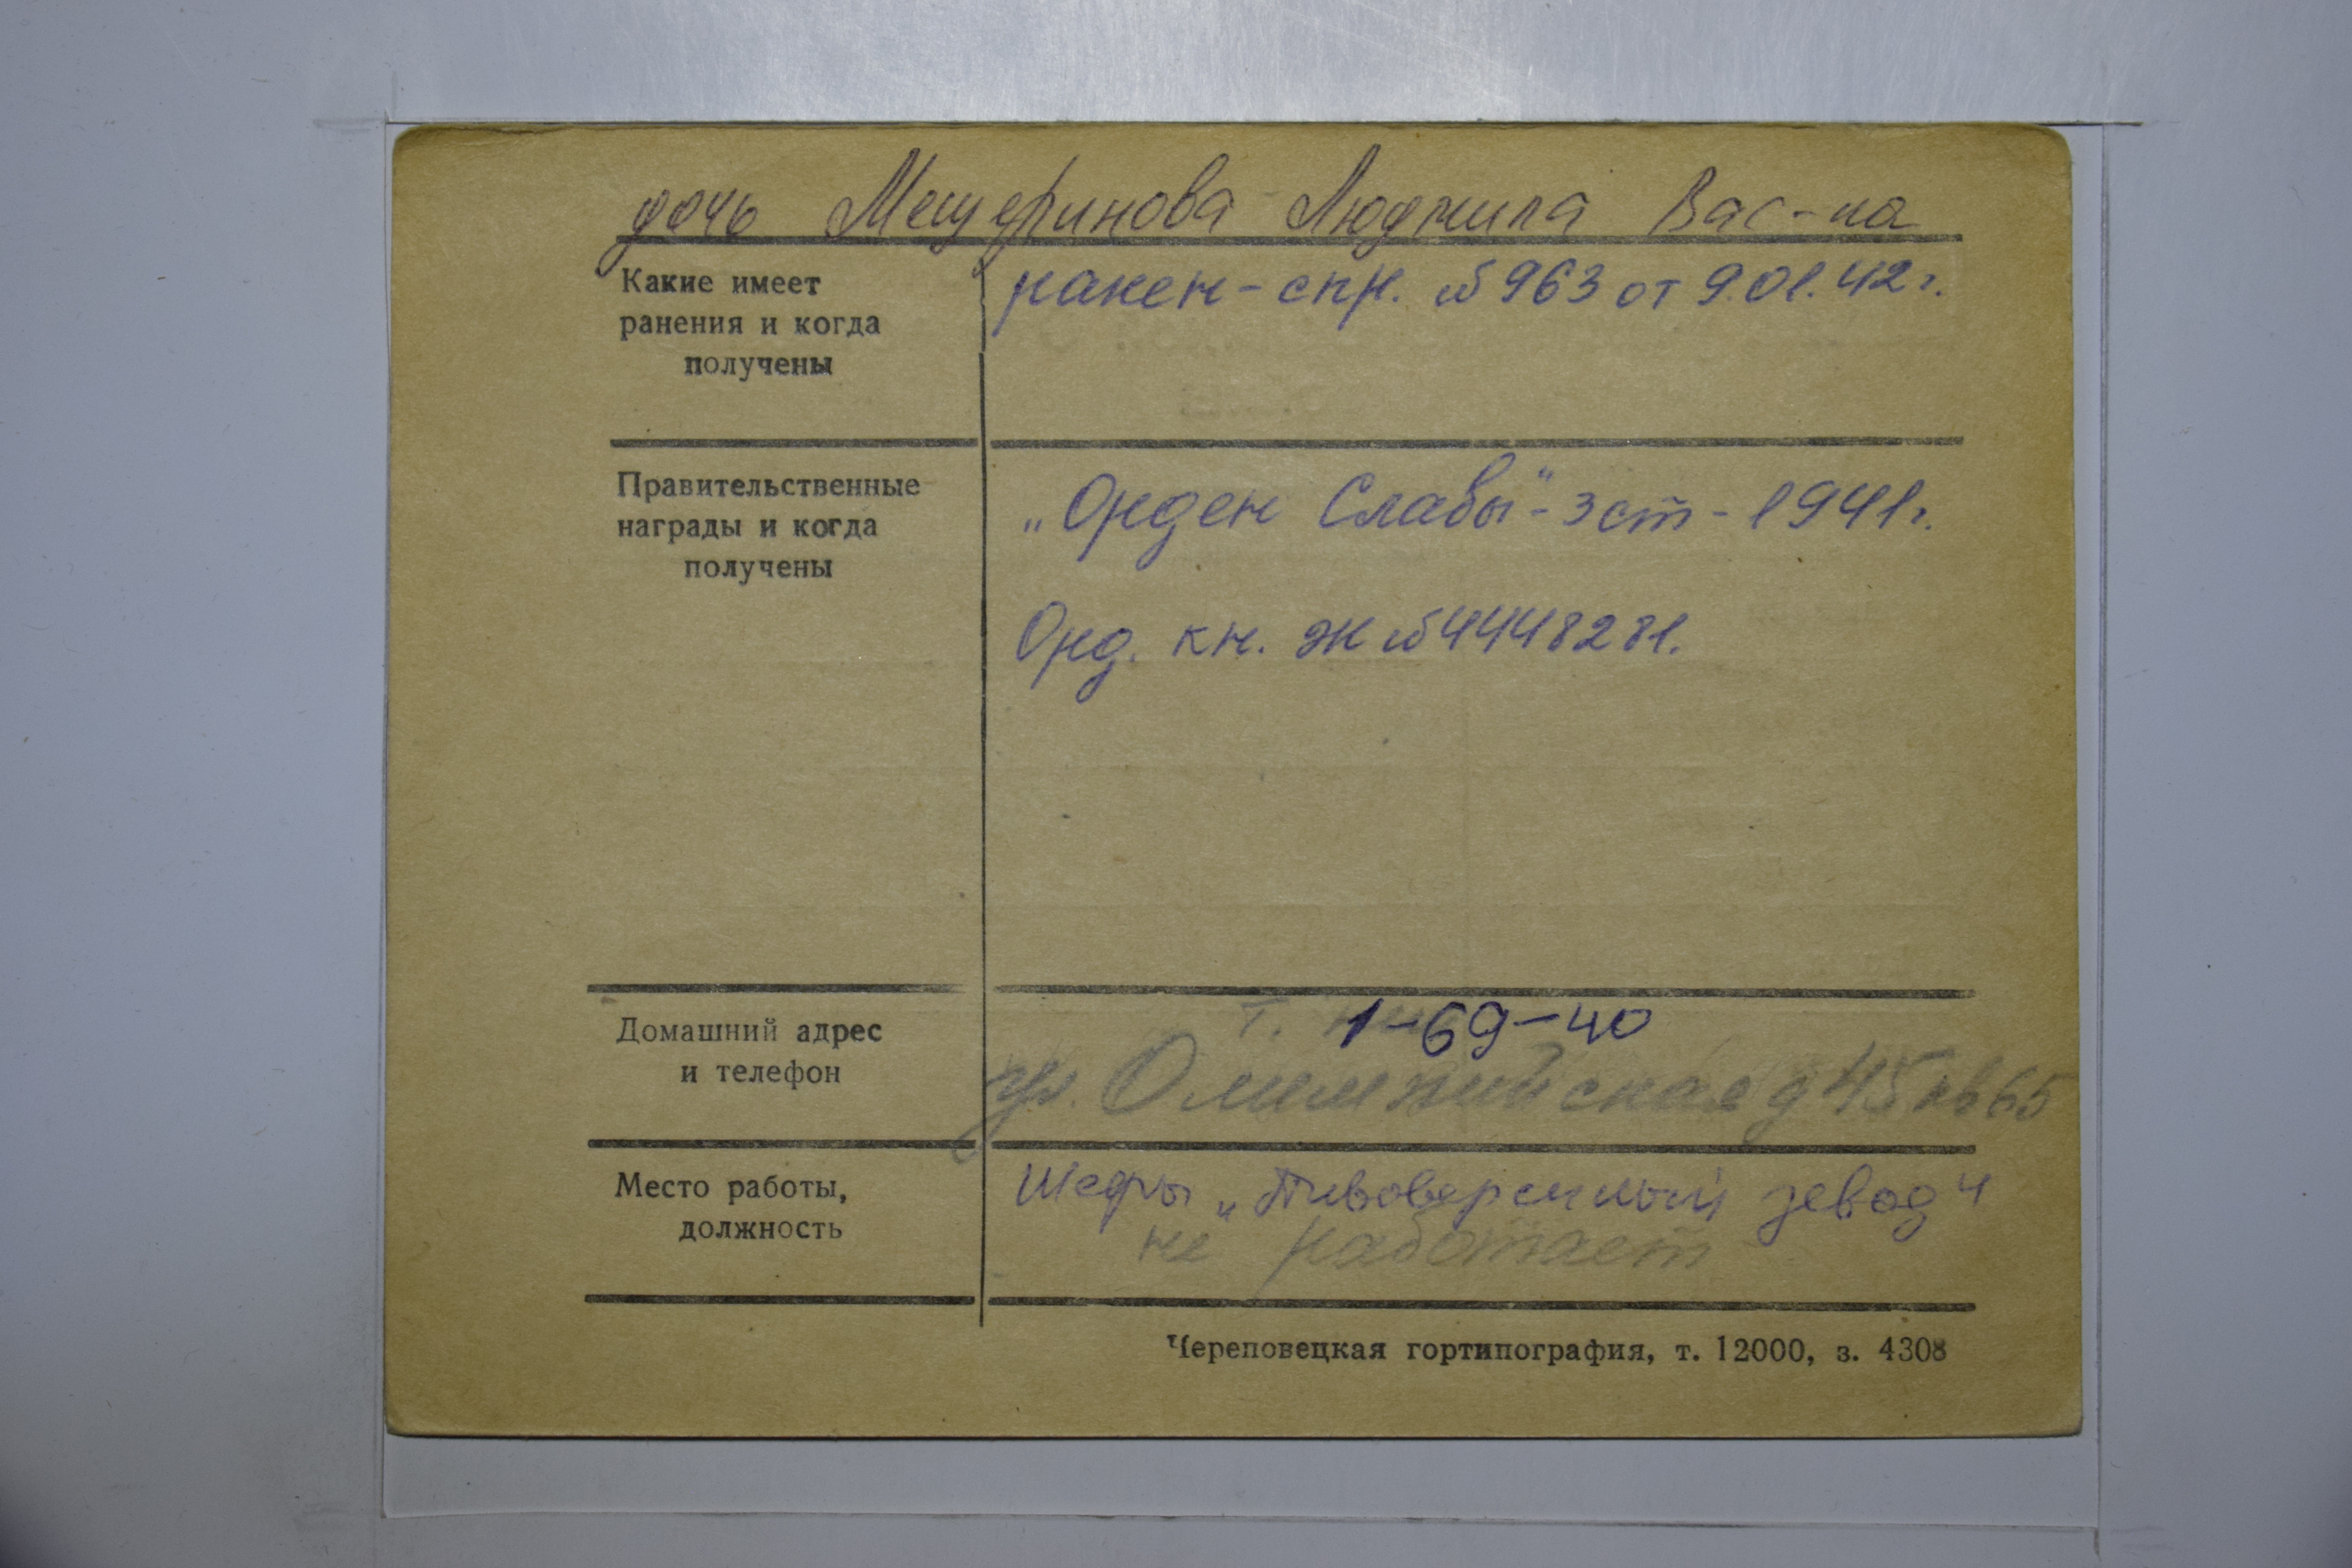 дочь Мещеринова Людмила Вас-на
Какие имеет
ранения и когда
получены
ранен - спр. № 963 от 9.01.42 г.
Правительственные
награды и когда
получены
„Орден Славы" - 3 ст - 1941 г.
Орд. кн. Ж № 4448281.
Домашний адрес
и телефон
т. 1-69-40
ул. Олимпийская д 45 кв 65
Место работы,
должность
Шефы „Пивоваренный завод"
не работает
Череповецкая гортипография, т. 12000, з. 4308